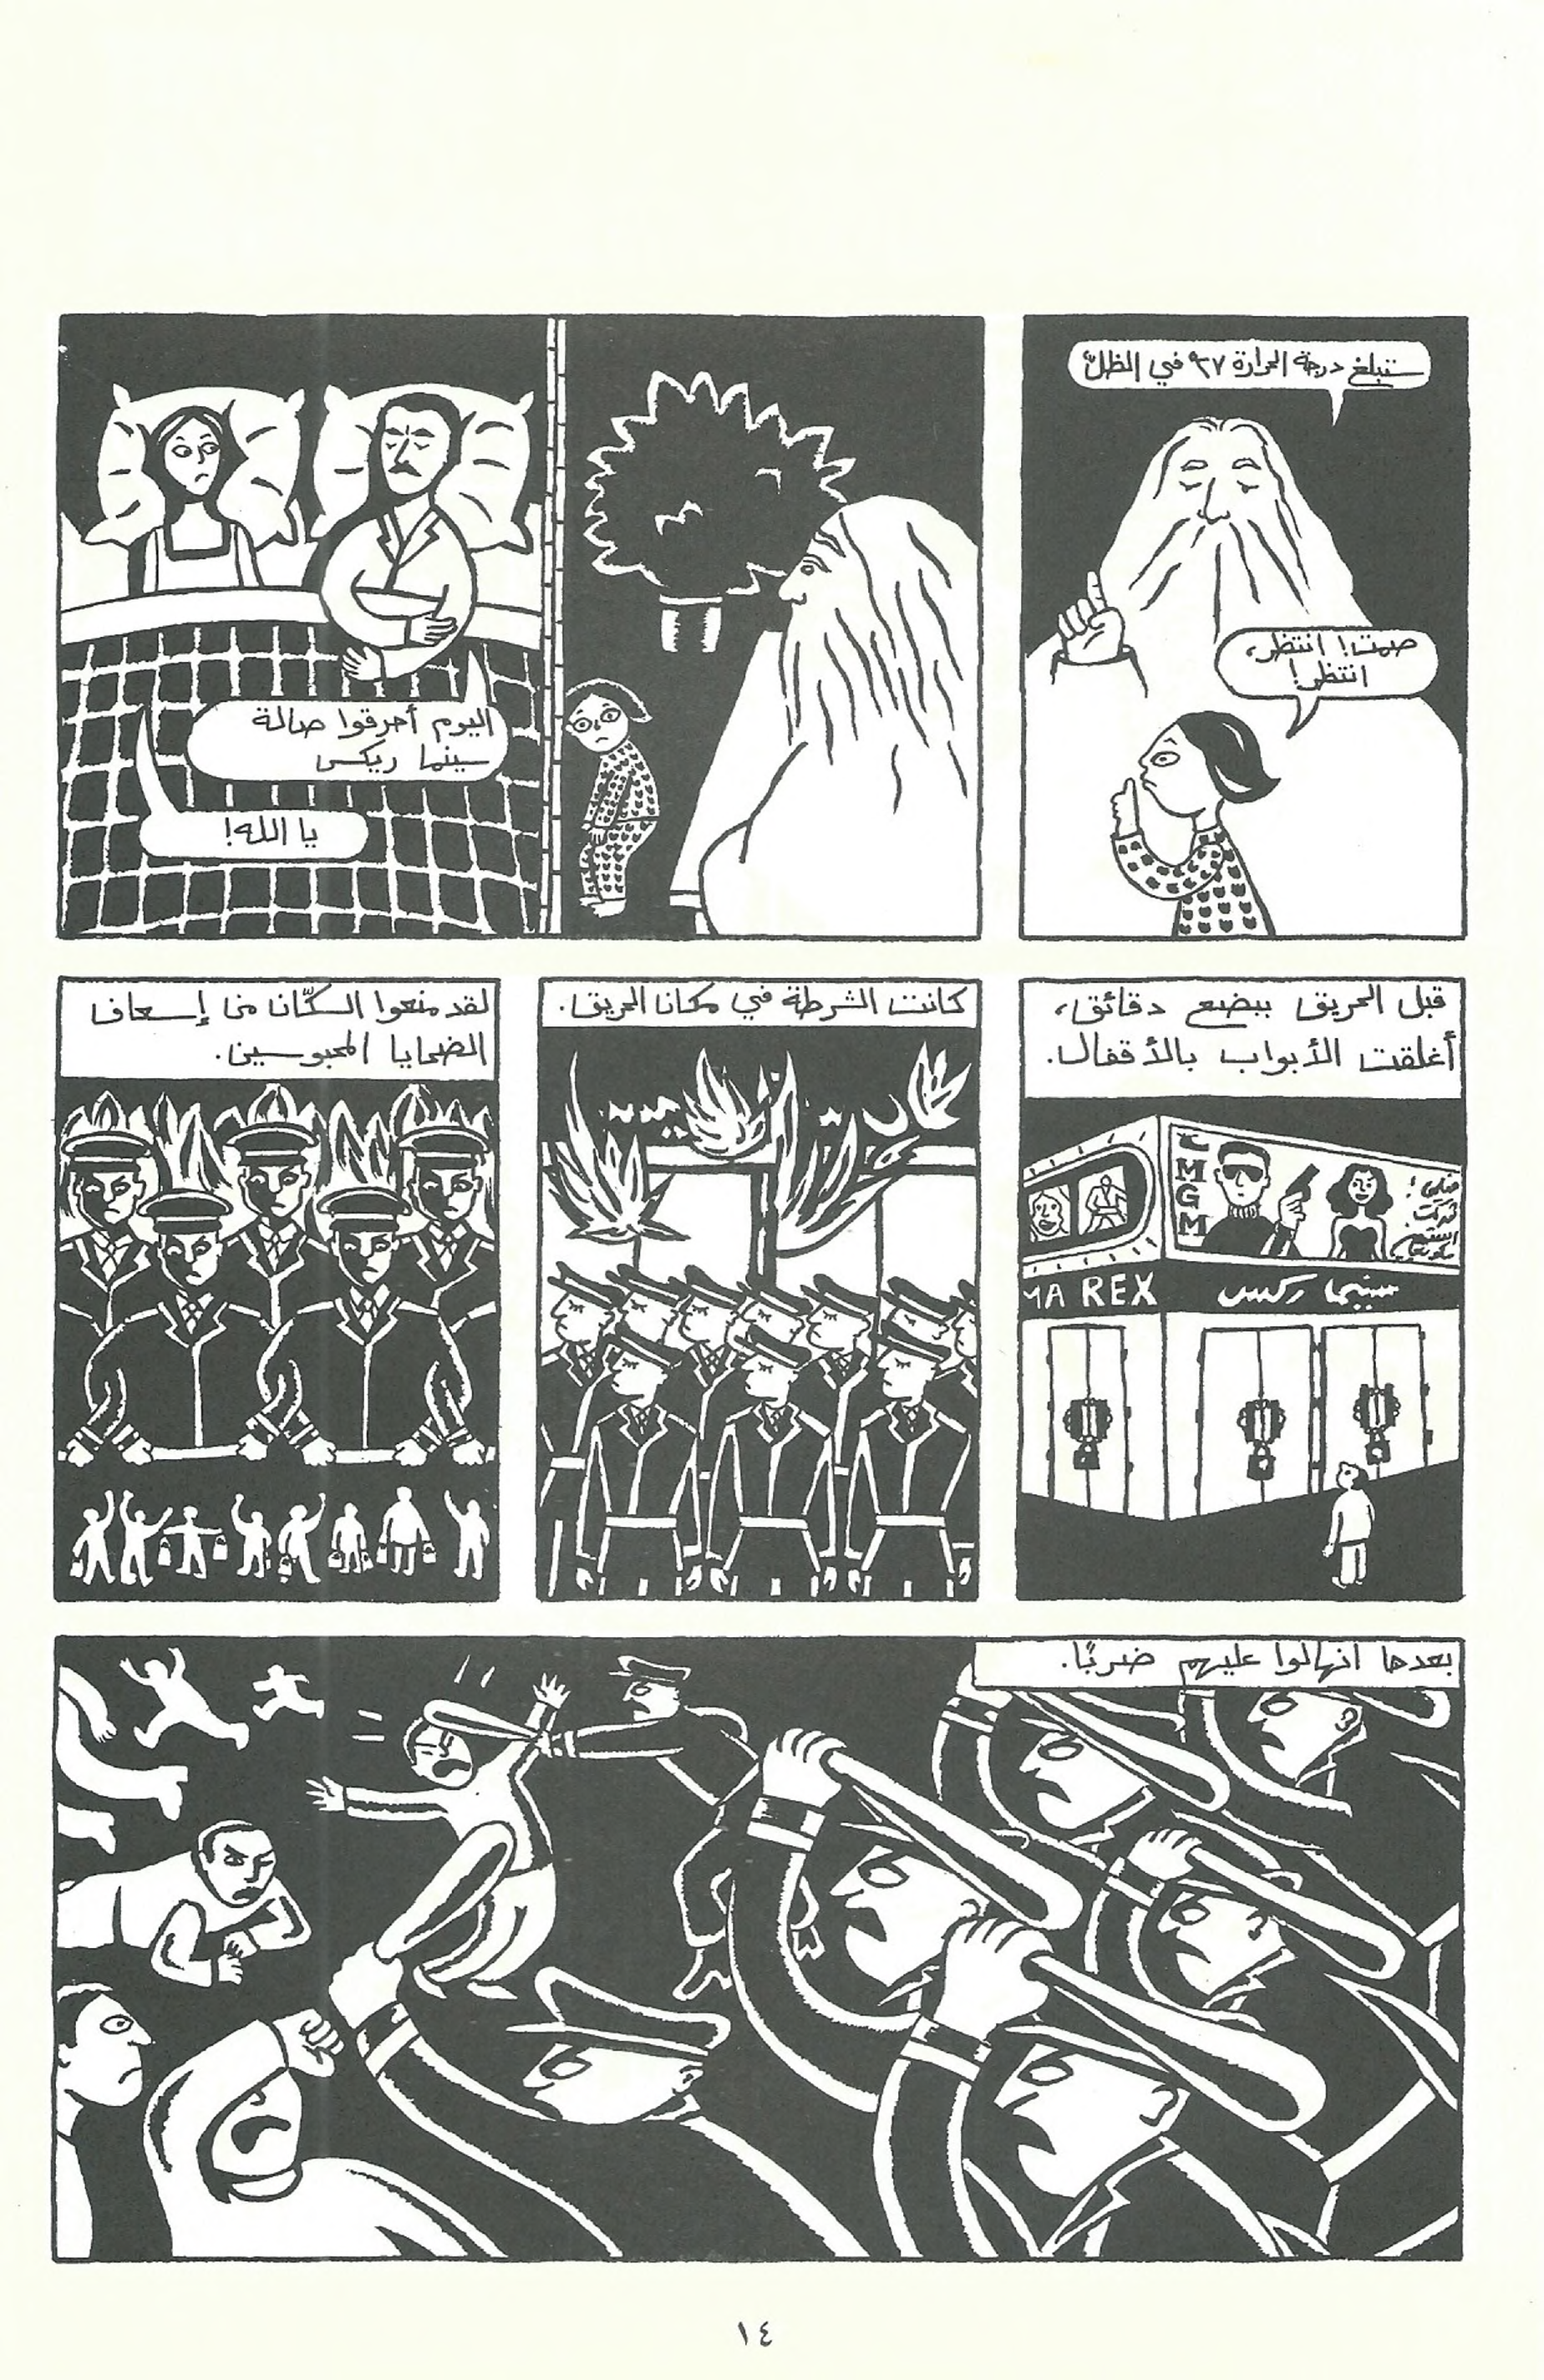 ستبلغ درجة الحرارة ٣٧ في الظلّ
صمت! انتظر،
انتظر!
اليوم أحرقوا صالة
سينما ريكس
يا الله!
قبل الحريق ببضع دقائق،
أغلقت الأبواب بالأقفال.
MGM
MA REX
سينما ركس
كانت الشرطة في مكان الحريق.
لقد منعوا السكّان من إسعاف
الضحايا المحبوسين.
بعدها انهالوا عليهم ضربًا.
١٤